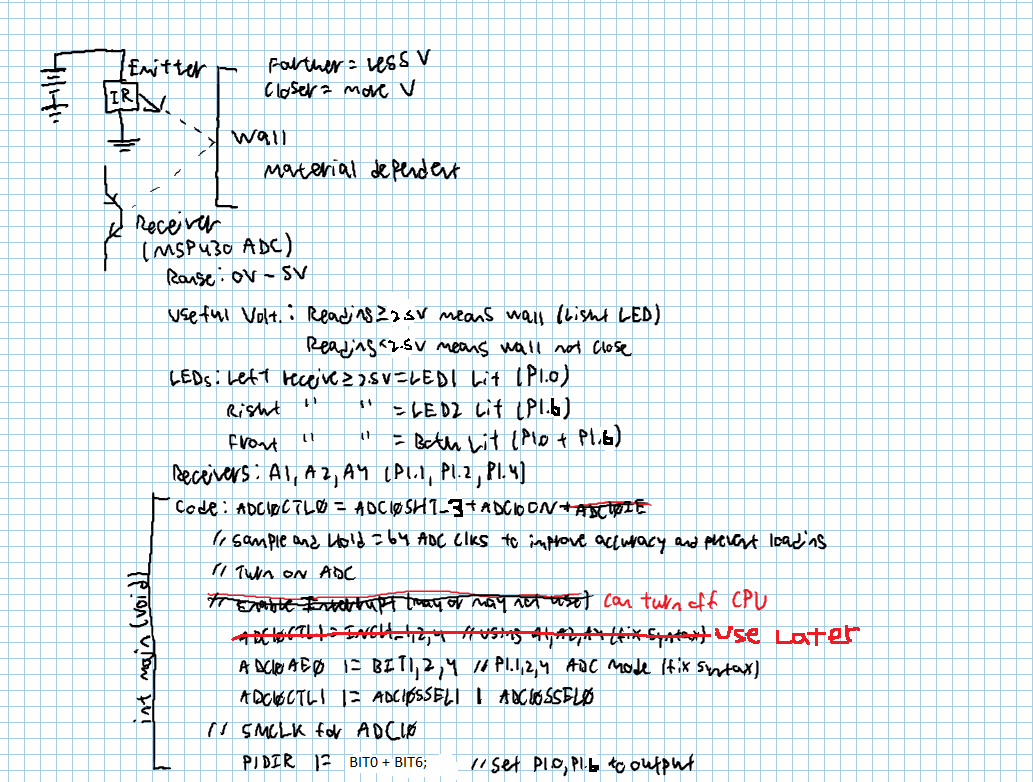 Emitter
Farther = Less V
Closer = more V
IR
Wall
Material dependent
Receiver
(MSP430 ADC)
Range: 0V - 5V
Useful Volt.: Reading ≥ 2.5V means wall (Light LED)
Reading < 2.5V means wall not close
LEDs: Left receive ≥ 2.5V = LED1 Lit (P1.0)
Right " " = LED2 Lit (P1.6)
Front " " = Both Lit (P1.0 + P1.6)
Receivers: A1, A2, A4 [P1.1, P1.2, P1.4]
Code: ADC10CTL0 = ADC10SHT_3 + ADC10ON + ADC10IE
// Sample and Hold = 64 ADC Clks to improve accuracy and prevent loading
// Turn on ADC
// Enable Interrupt (may or may not use) Can turn off CPU
ADC10CTL1 = INCH_1,2,4 // Using A1, A2, A4 (fix Syntax) Use Later
ADC10AE0 |= BIT1,2,4 // P1.1,2,4 ADC mode (fix syntax)
ADC10CTL1 |= ADC10SSEL1 | ADC10SSEL0
// SMCLK for ADC10
P1DIR |= BIT0 + BIT6; // Set P1.0, P1.6 to output